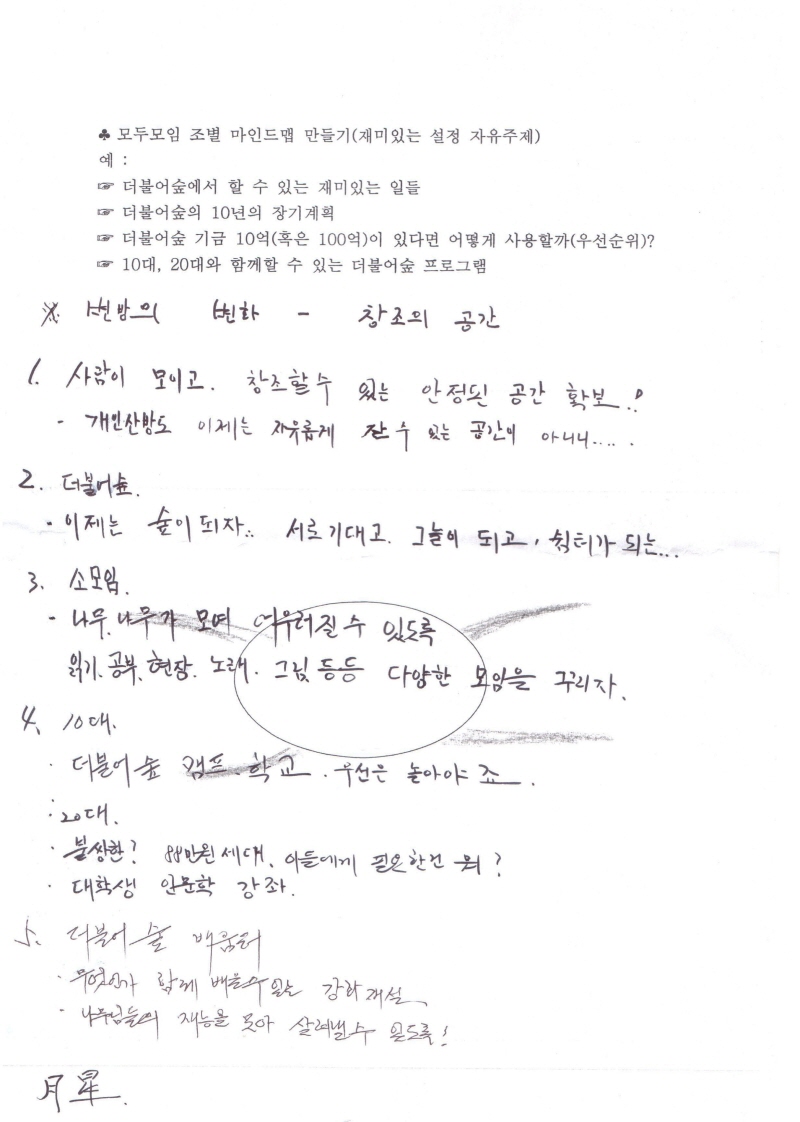 ♣ 모두모임 조별 마인드맵 만들기(재미있는 설정 자유주제)
예 :
☞ 더불어숲에서 할 수 있는 재미있는 일들
☞ 더불어숲의 10년의 장기계획
☞ 더불어숲 기금 10억(혹은 100억)이 있다면 어떻게 사용할까(우선순위)?
☞ 10대, 20대와 함께할 수 있는 더불어숲 프로그램
※ 변방의 변화 - 창조의 공간
1. 사람이 모이고. 창조할수 있는 안정된 공간 확보..!
- 개인산방도 이제는 자유롭게 잘 수 있는 공간이 아니니.....
2. 더불어숲.
· 이제는 숲이 되자.. 서로 기대고. 그늘이 되고, 쉼터가 되는...
3. 소모임.
- 나무.나무가 모여 어우러질 수 있도록
읽기. 공부. 현장. 노래. 그림 등등 다양한 모임을 꾸리자.
4. 10대.
· 더불어숲 캠프. 학교. 우선은 놀아야죠.
: 20대.
· 불쌍한? 88만원 세대. 이들에게 필요한건 뭐?
· 대학생 인문학 강좌.
5. 더불어숲 배움터
· 무엇인가 함께 배울수 있는 강좌개설.
· 나무님들의 재능을 모아 살려낼 수 있도록!
月